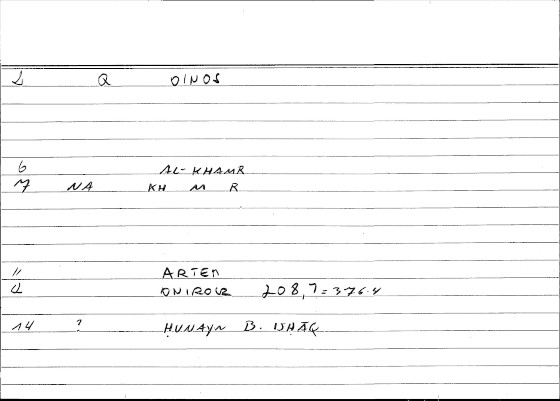 2 Q OINOS
6 AL-KHAMR
7 NA KH M R
11 ARTEM
12 ONIROCR 208,7 = 376.4
14 ? ḤUNAYN B. ISḤĀQ